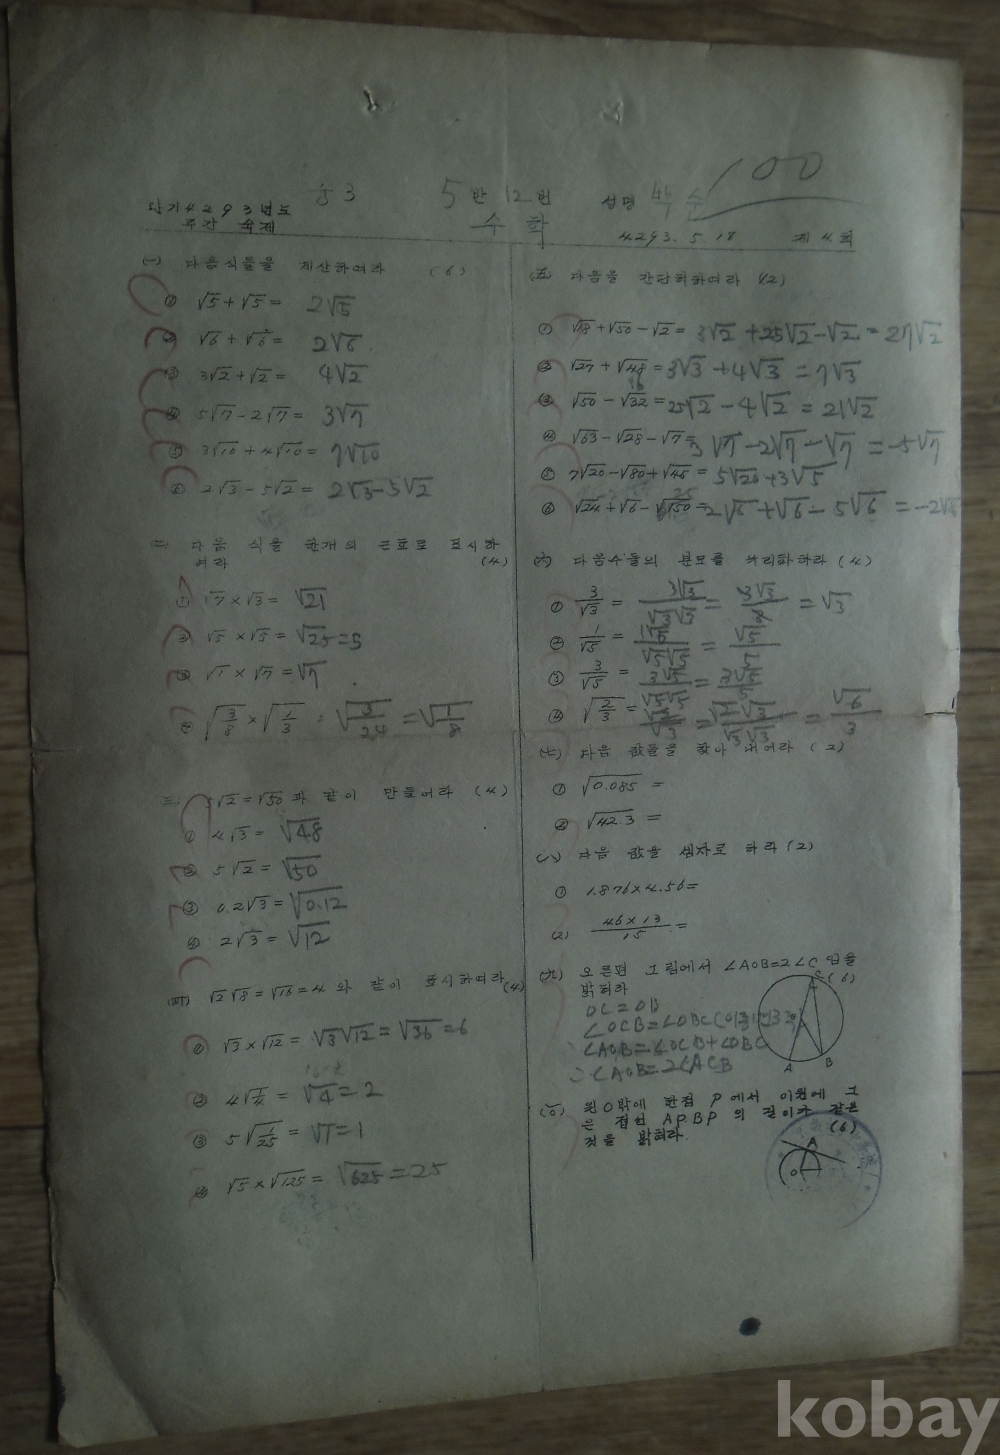 100
중3 5반 12번 성명
단기4293년도
주간 숙제
수학
4293. 5. 18 제4회
(一) 다음식들을 계산하여라 (6)
① √5+√5= 2√5
② √6+√6= 2√6
③ 3√2+√2= 4√2
④ 5√7-2√7= 3√7
⑤ 3√10+4√10= 7√10
⑥ 2√3-5√2= 2√3-5√2
二. 다음 식을 한개의 근호로 표시하
여라 (4)
① √7×√3= √21
② √5×√5=√25=5
③ √1×√7=√7
④ √(3/8)×√(1/3) = √(3/24) = √(1/8)
三. 5√2=√50과 같이 만들어라 (4)
① 4√3= √48
② 5√2= √50
③ 0.2√3=√0.12
④ 2√3=√12
(四) √2√8=√16=4 와 같이 표시하여라 (4)
① √3×√12= √3√12=√36=6
② 4√(1/4)= √4=2
③ 5√(1/25)= √1=1
④ √5×√125= √625=25
(五) 다음을 간단히하여라 (12)
① √18+√50-√2= 3√2+25√2-√2=27√2
② √27+√48=3√3+4√3=7√3
③ √50-√32=25√2-4√2=21√2
④ √63-√28-√7=3√7-2√7-√7=-5√7
⑤ 7√20-√80+√45=5√20+3√5
⑥ √24+√6-√150=2√6+√6-5√6=-2√6
(六) 다음수들의 분모를 유리화하라 (4)
① 3/√3 = 3√3/√3√3 = 3√3/3 = √3
② 1/√5 =
③ 3/√5 =
④ √(2/3) = = √6/3
(七) 다음 값들을 찾아 내어라 (2)
① √0.085 =
② √42.3 =
(八) 다음 값을 셈자로 하라 (2)
① 1.876×4.56=
(2) 46×13/15 =
(九) 오른편 그림에서 ∠AOB=2∠C 임을
밝혀라 (6)
OC=OB
∠OCB=∠OBC
∠AOB=∠OCB+∠OBC
∴∠AOB=2∠ACB
C
A B
(十) 원O밖에 한점 P에서 이원에 그
은 접선 AP.BP 의 길이가 같은
것을 밝혀라. (6)
A
O
kobay